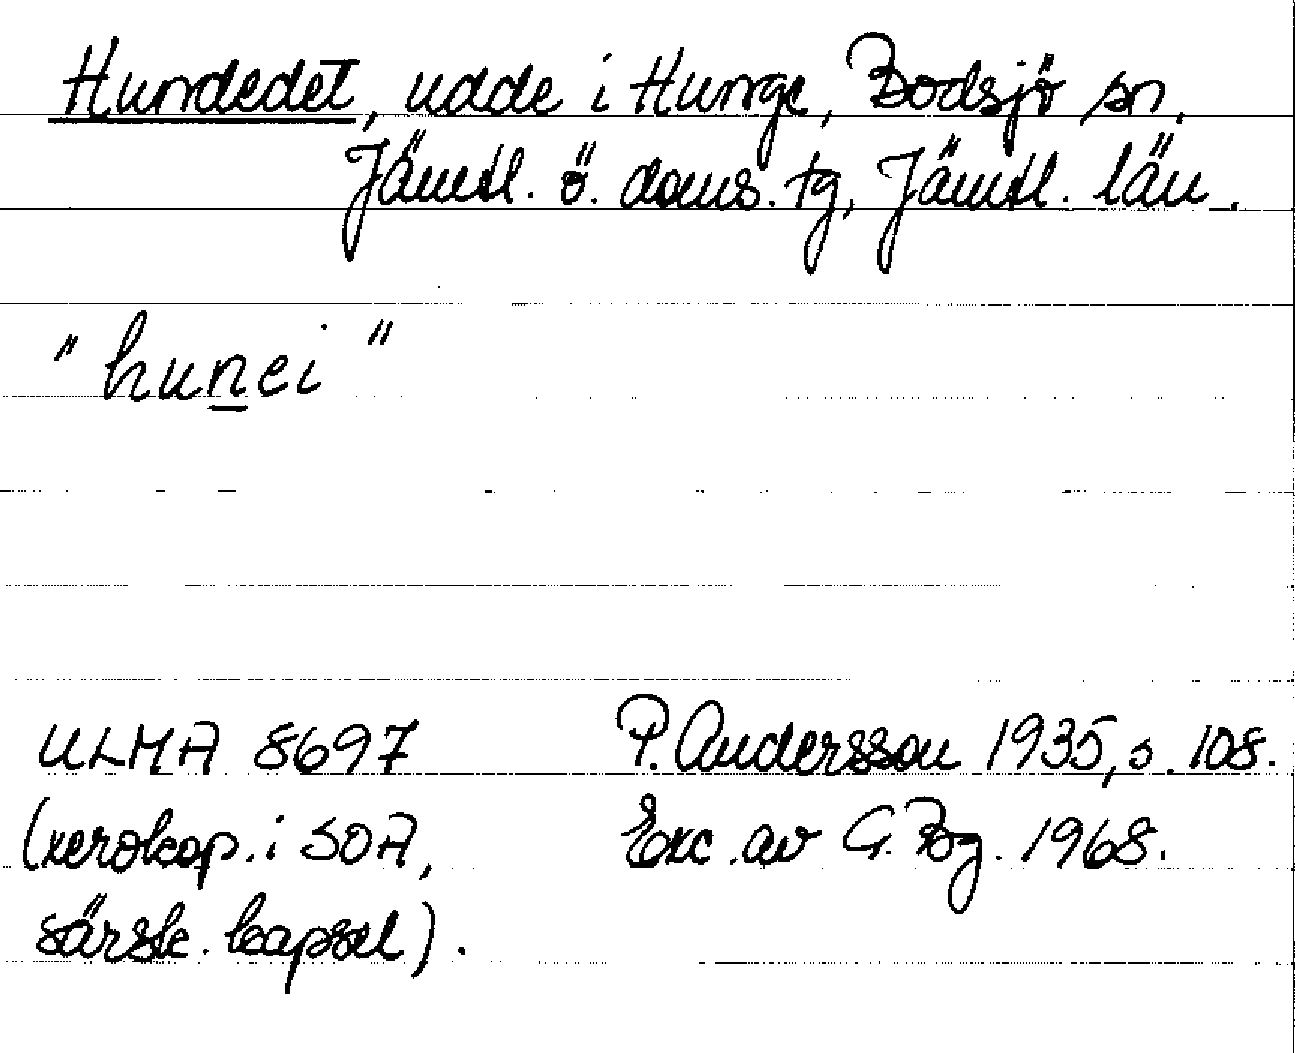 Hundedet, udde i Hunge, Bodsjö sn.
Jämtl. ö. doms. tg, Jämtl. län.
"hunei"
ULMA 8697 P. Andersson 1935, s. 108.
(xerokop. i SOA, Exc. av G. Bg. 1968.
särsk. kapsel).